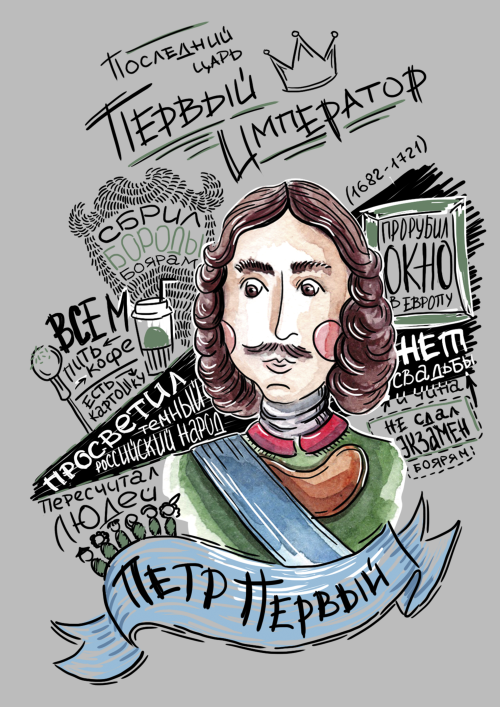 Последний
царь
Первый
Император
(1682-1721)
Сбрил
бороды
боярам
Прорубил
окно
в Европу
Всем
пить
кофе
есть
картошку
Просветил
темный
российский народ
Нет
свадьбы
и чина
не сдал
экзамен
боярям
Пересчитал
людей
Петр Первый!